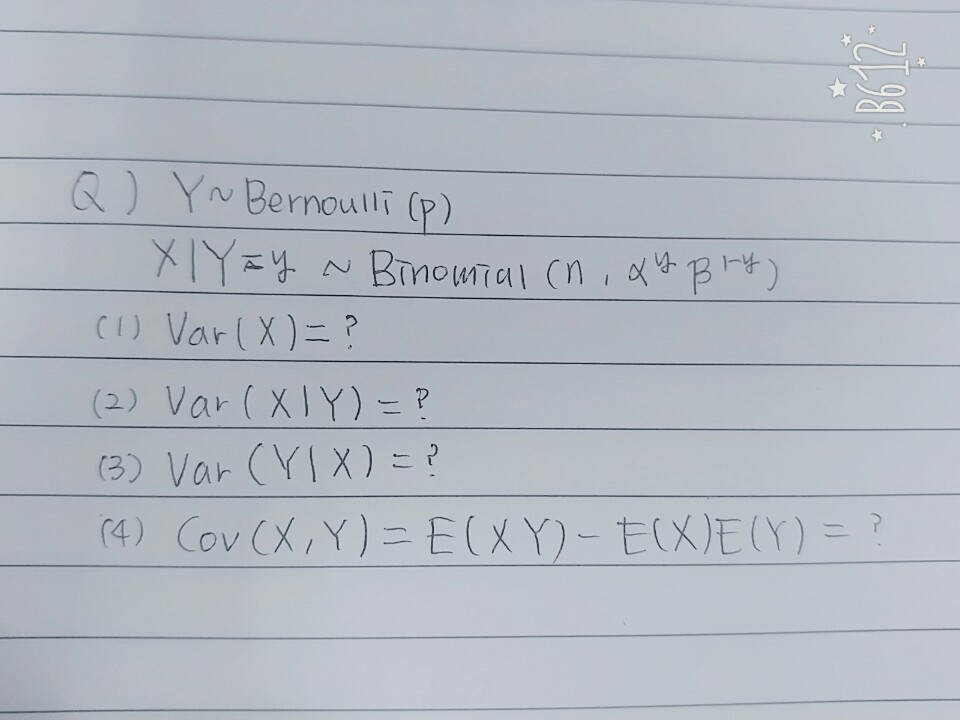 B612
Q) Y ~ Bernoulli (p)
X|Y=y ~ Binomial (n, α^y β^1-y)
(1) Var(X) = ?
(2) Var (X|Y) = ?
(3) Var (Y|X) = ?
(4) Cov(X,Y) = E(XY) - E(X)E(Y) = ?